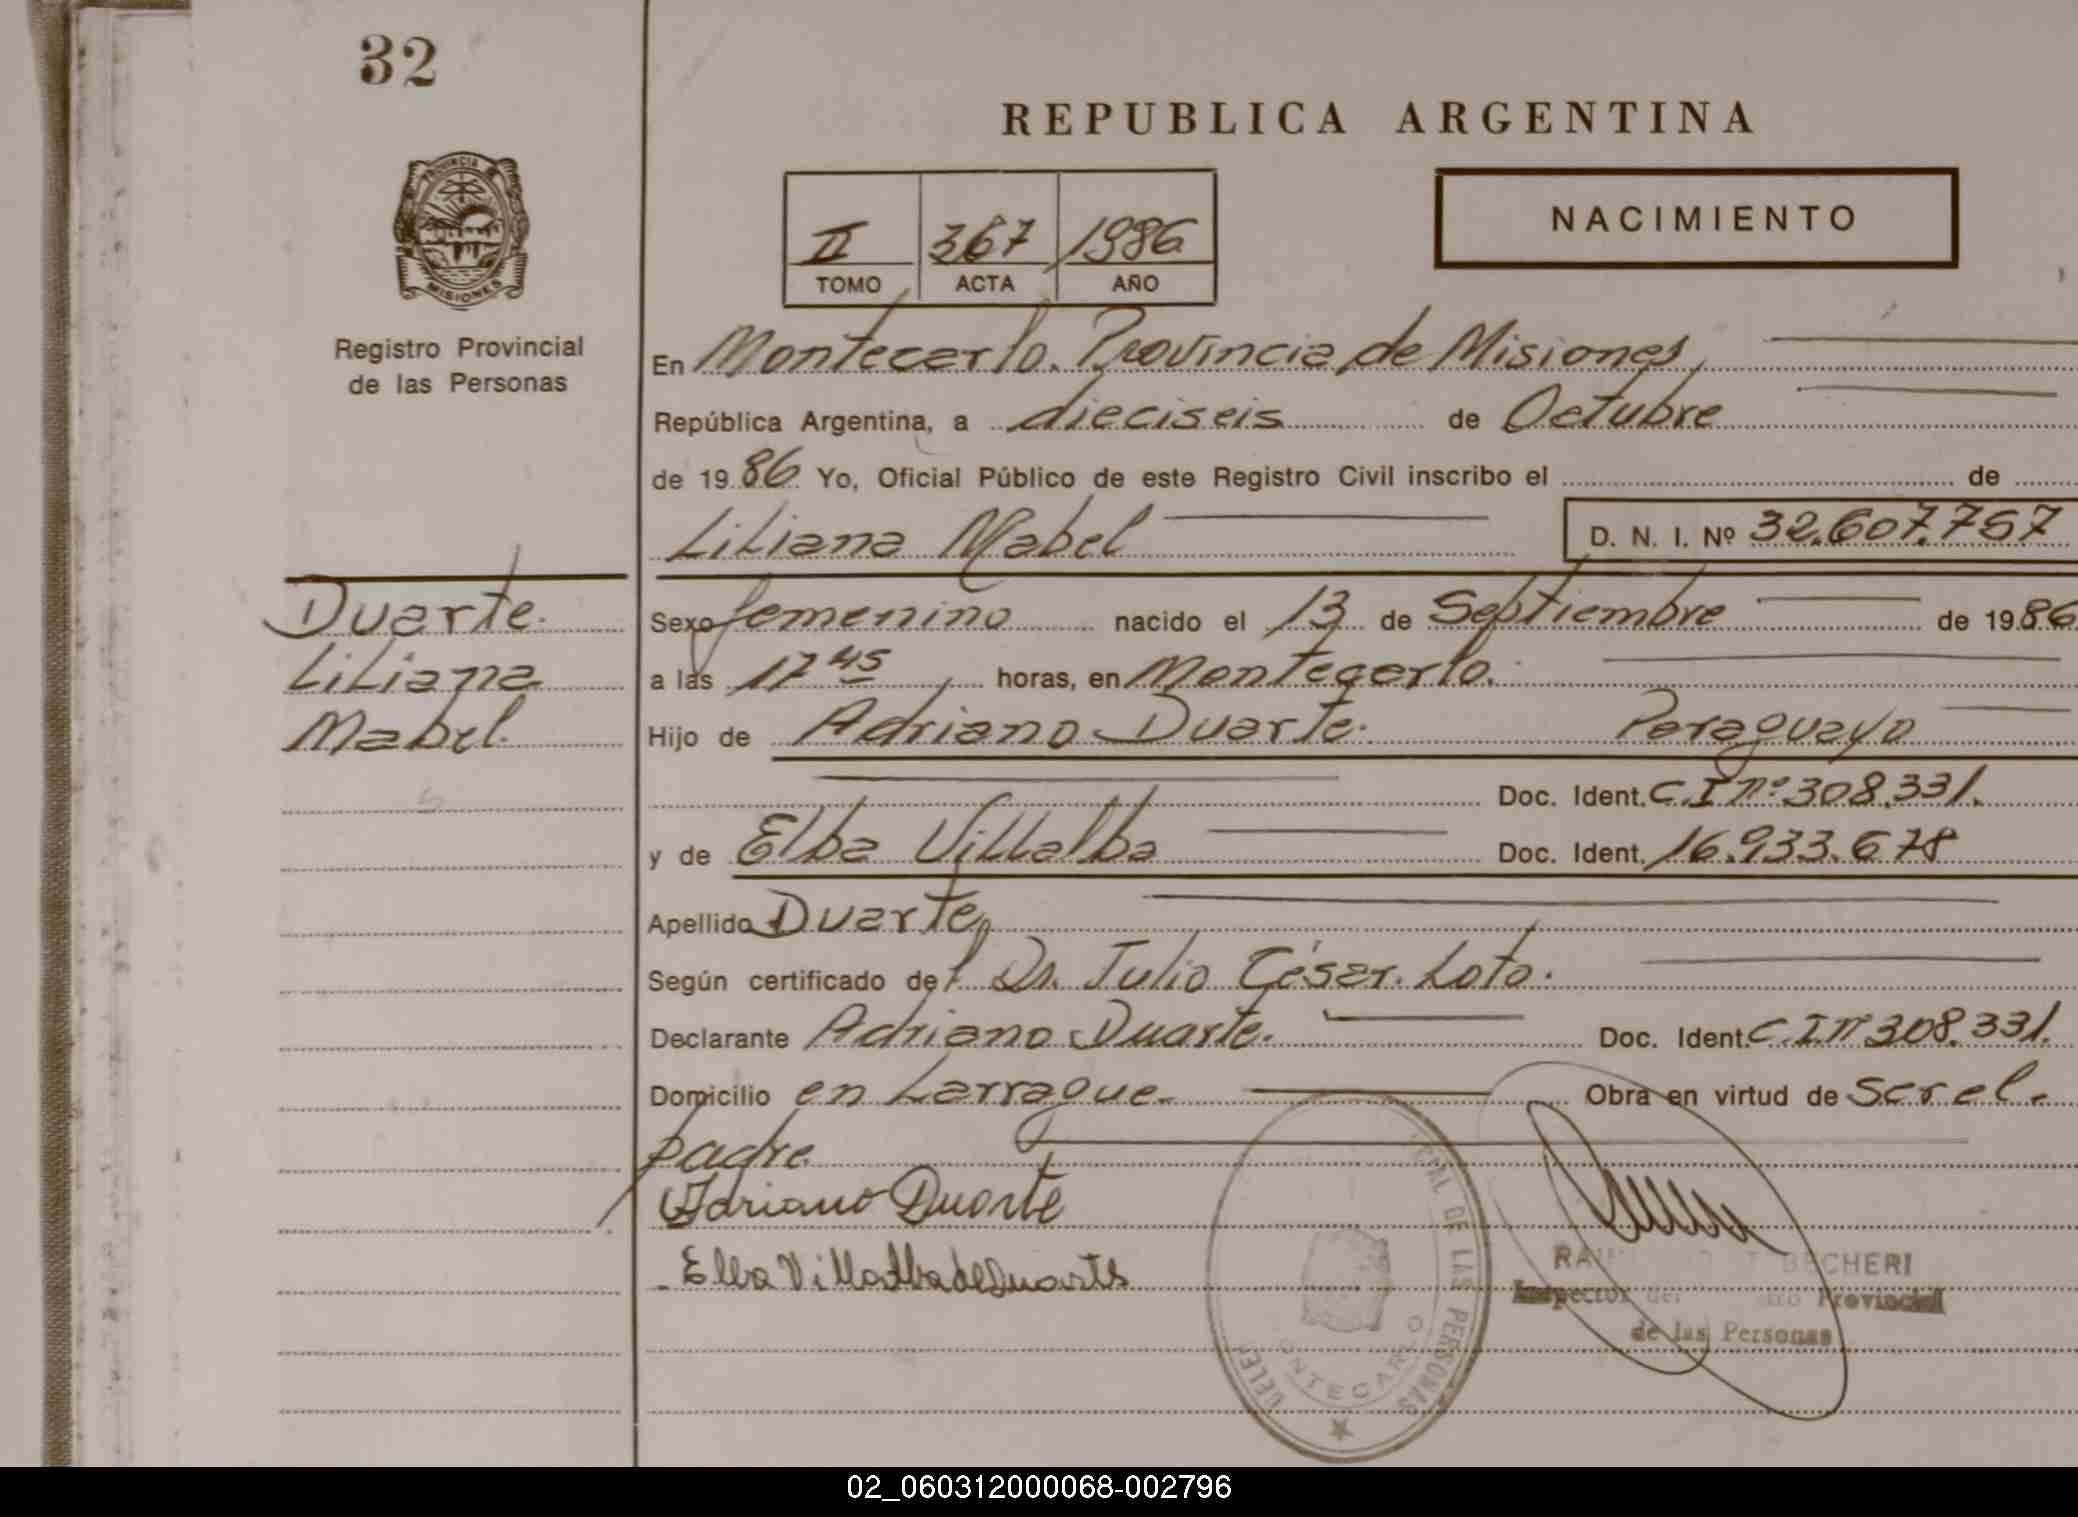 32
REPUBLICA ARGENTINA
PROVINCIA
MISIONES
Registro Provincial
de las Personas
II 367 1986
TOMO ACTA AÑO
NACIMIENTO
En Montecarlo. Provincia de Misiones
República Argentina, a dieciseis de Octubre
de 1986 Yo, Oficial Público de este Registro Civil inscribo el de
Liliana Mabel D. N. I. Nº 32.607.757
Duarte.
Liliana
Mabel.
Sexo femenino nacido el 13 de Septiembre de 1986
a las 17 45 horas, en Montecarlo.
Hijo de Adriano Duarte. Paraguayo
Doc. Ident. C.I nº 308.331.
y de Elba Villalba Doc. Ident. 16.933.678
Apellido Duarte
Según certificado del Dr. Julio César. Loto.
Declarante Adriano Duarte. Doc. Ident. C.I nº 308.331.
Domicilio en Larrague. Obra en virtud de ser el.
padre.
Adriano Duarte
Elba Villalba de Duarte
DE LAS PERSONAS
MONTECARLO
BECHERI
Inspector del Provincial
de las Personas
02_060312000068-002796